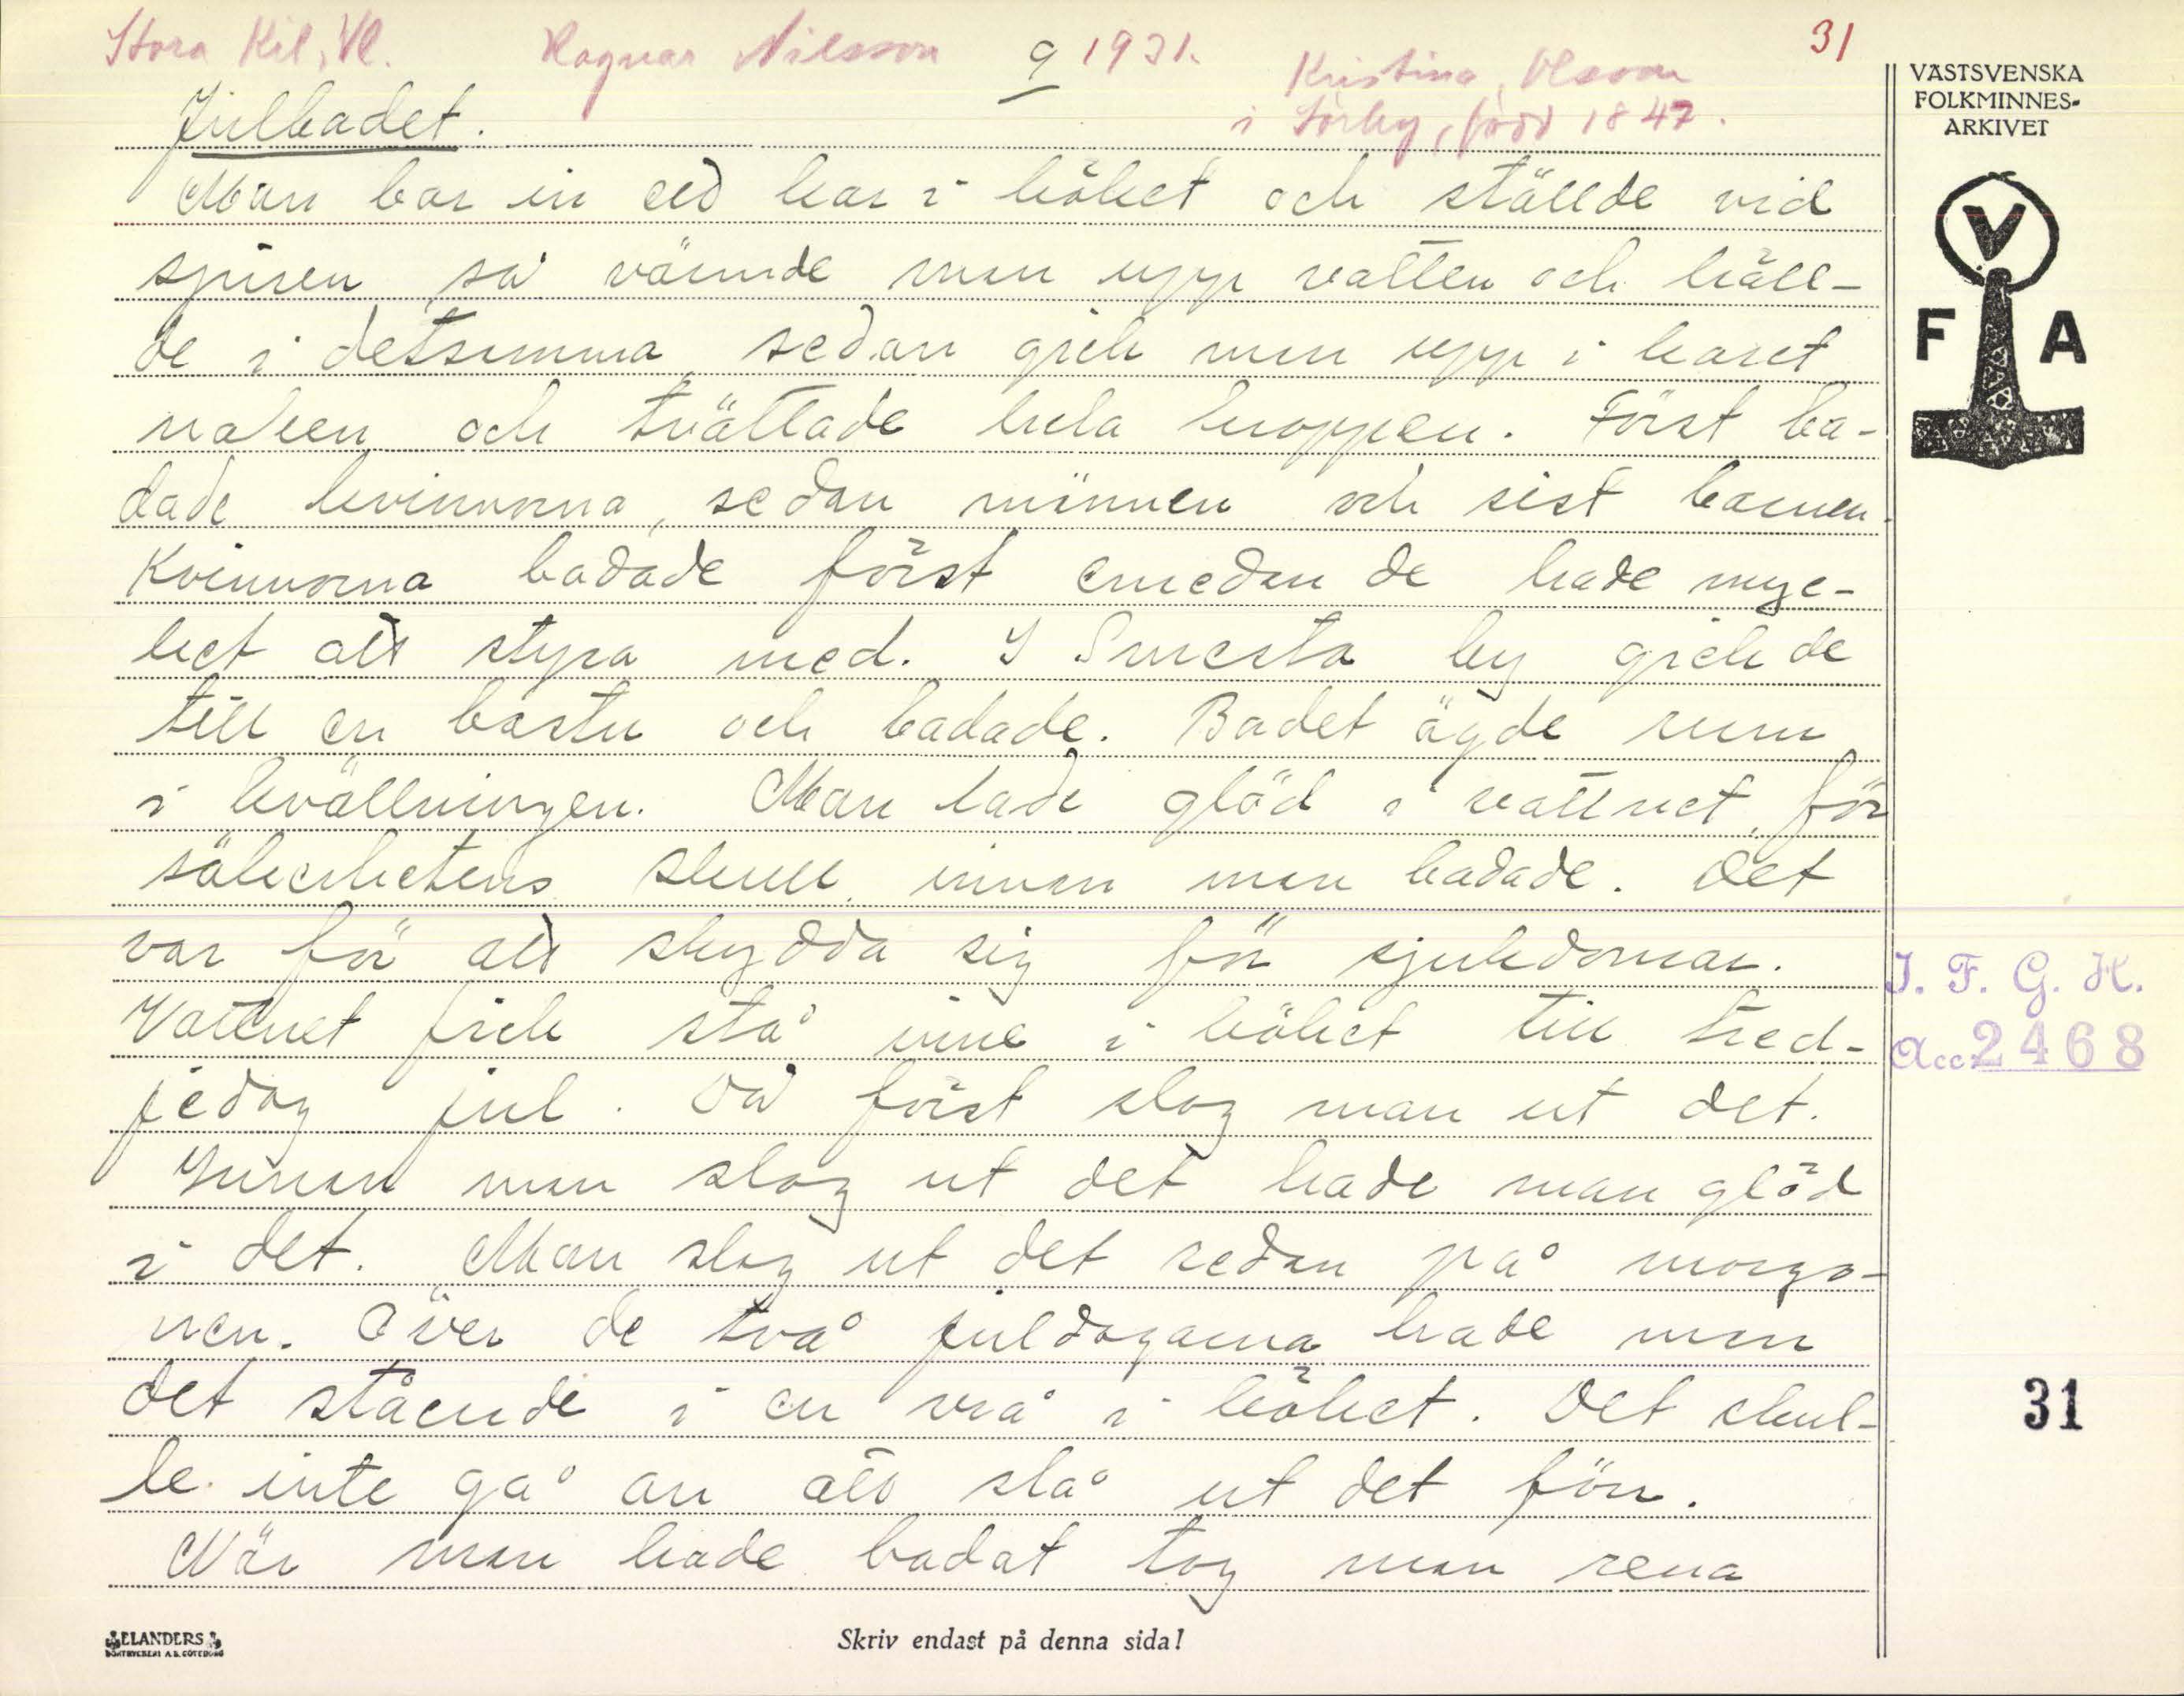 Stora Kil, Vl. Ragnar Nilsson 9 1931. 31
Kristina Olsson
i Sörby, född 1847.
VÄSTSVENSKA
FOLKMINNES-
ARKIVET
V
F A
Julbadet.
Man bar in ett kar i köket och ställde vid
spisen så värmde man upp vatten och häll-
de i detsamma, sedan gick man upp i karet
naken och tvättade hela kroppen. Först ba-
dade kvinnorna, sedan männen och sist barnen.
Kvinnorna badade först emedan de hade myc-
ket att styra med. I Smesta by gick de
till en bastu och badade. Badet ägde rum
i kvällningen. Man lade glöd i vattnet, för
säkerhetens skull, innan man badade. Det
var för att skydda sig för sjukdomar.
Vattnet fick stå inne i köket till tred-
jedag jul. Då först slog man ut det.
Innan man slog ut det hade man glöd
i det. Man slog ut det redan på morgo-
nen. Över de två juldagarna hade man
det stående i en vrå i köket. Det skul-
le inte gå an att slå ut det förr.
När man hade badat tog man rena
I. F. G. H.
Acc. 2468
31
ELANDERS
BOKTRYCKERI A.B. GÖTEBORG
Skriv endast på denna sida!